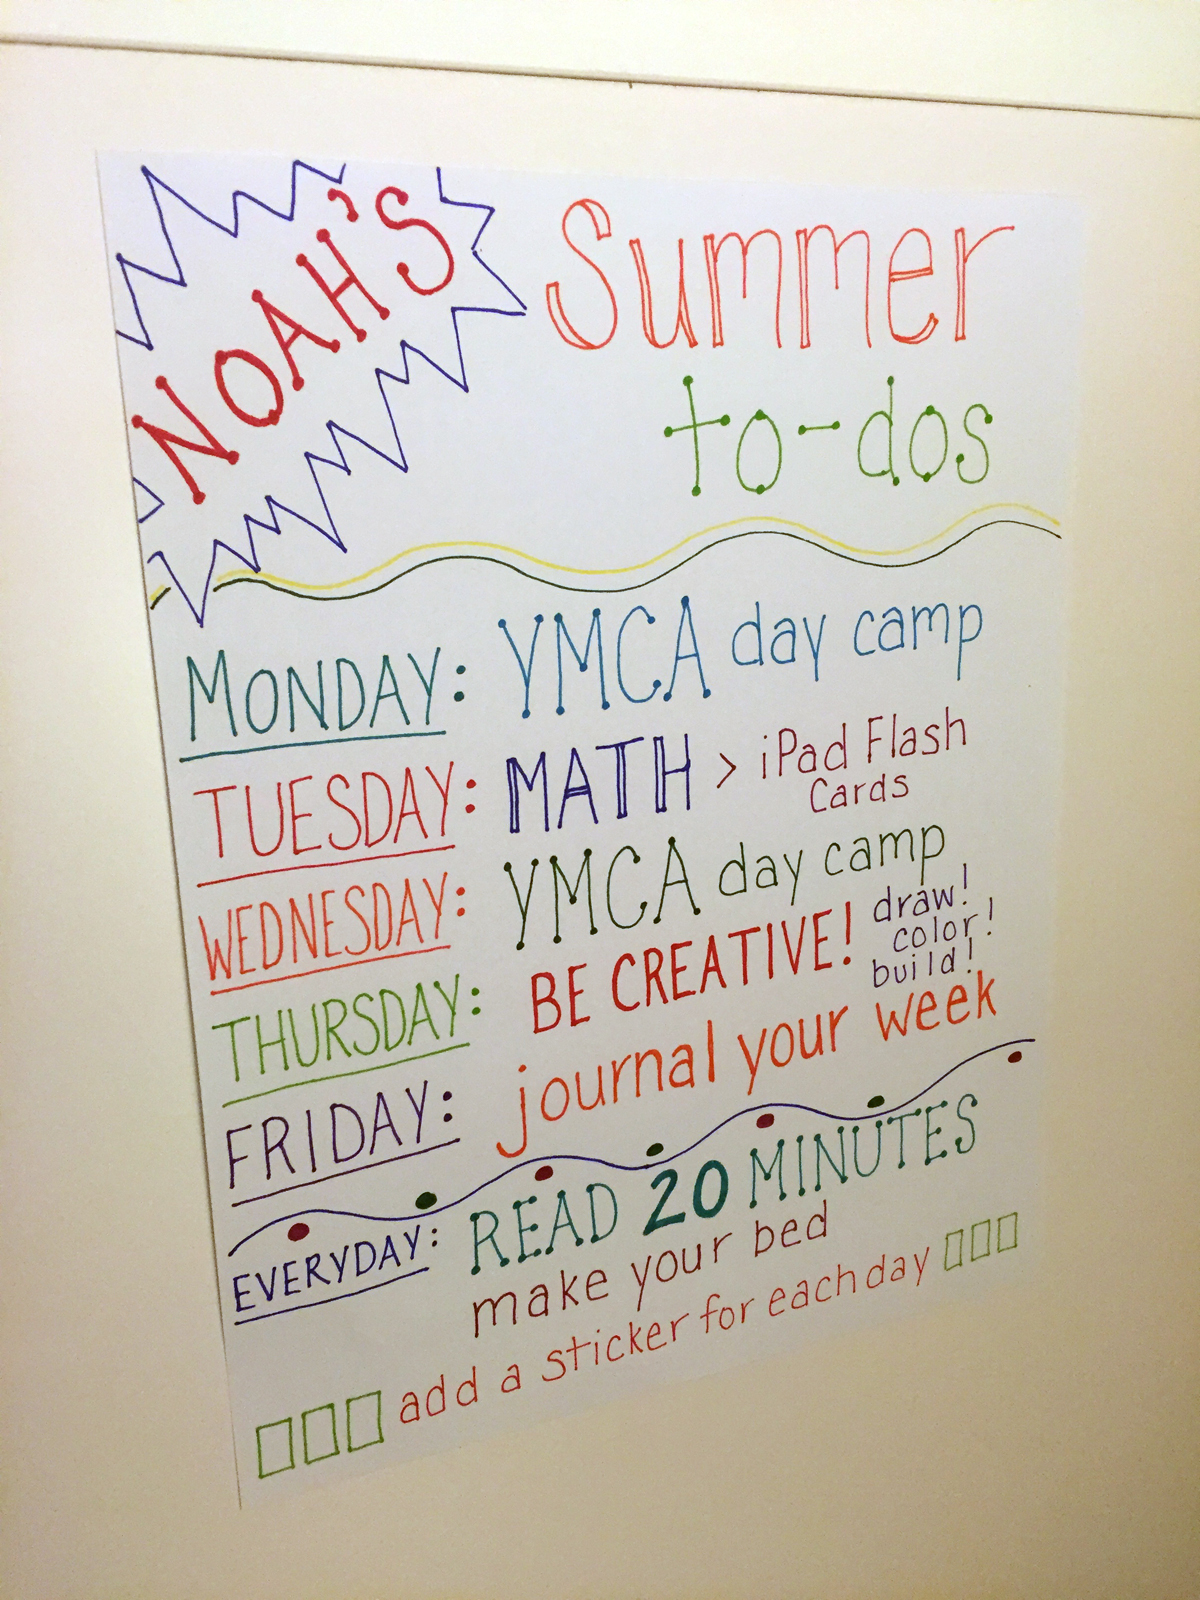 NOAH'S
Summer
to-dos
MONDAY: YMCA day camp
TUESDAY: MATH > iPad Flash
Cards
WEDNESDAY: YMCA day camp
THURSDAY: BE CREATIVE! draw!
color!
build!
FRIDAY: journal your week
EVERYDAY: READ 20 MINUTES
make your bed
add a sticker for each day